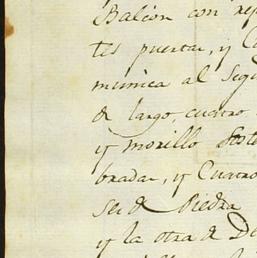 Balcon con rep
tes puertar, y C
munica al Segu
de largo, cuatro
y morillo
bradar, y Cuatro
se de Piedra
y la otra de De